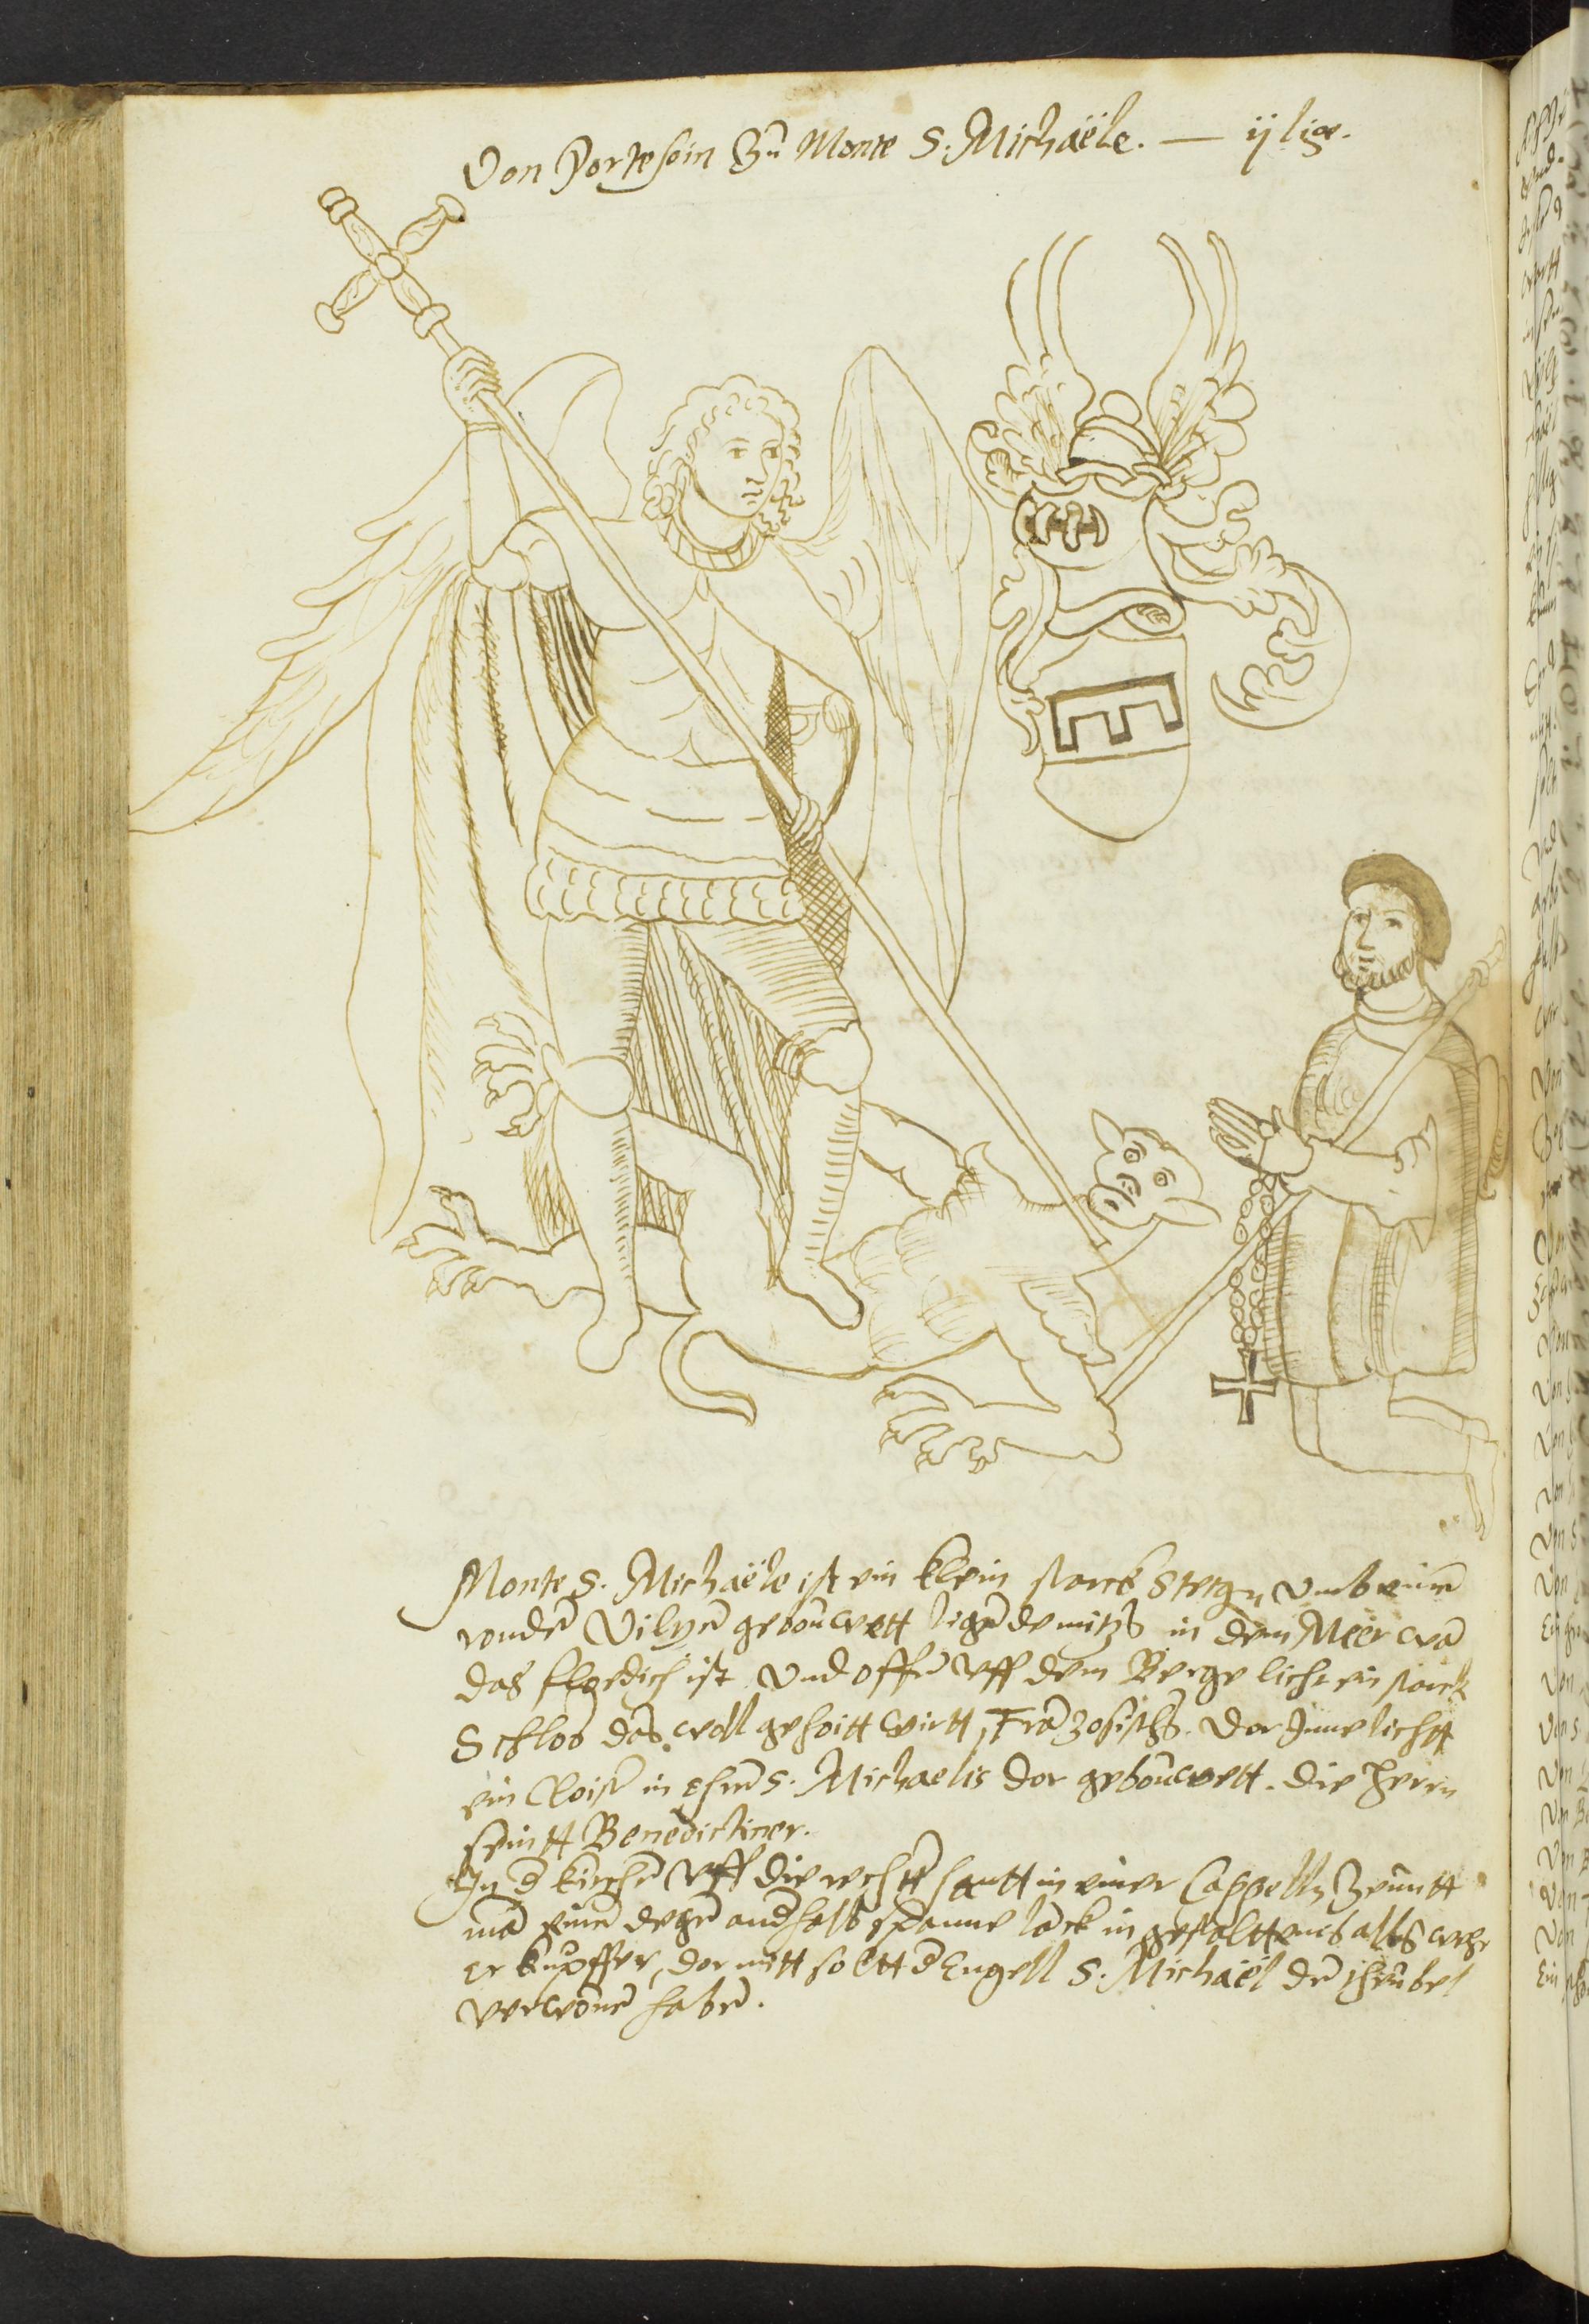 Von Portesoin Zu Monte S. Michaële. — ij lige.
Monte S. Michaële ist ein klein starck Stetgn, umb einen
runden Vilzen gebouwett ligende mitzs in dem Meer wan
das floedich ist. Und offen uff dem Berge licht ein starck
Schlos das woll gehoitt wirtt, Franzosischs. Dar Inne lichtt
ein Cloister in ehren S. Michaelis dar gebouwett. die Herrn
seintt Benedictiner.
In der kirchen uff die rechtt hantt in einer Cappelln Zeuntt
man einen degen andhalb spanne lanck in gestaltt als
er kupffer, dar mitt soltt der Engell S. Michaël den
verwonnen haben.